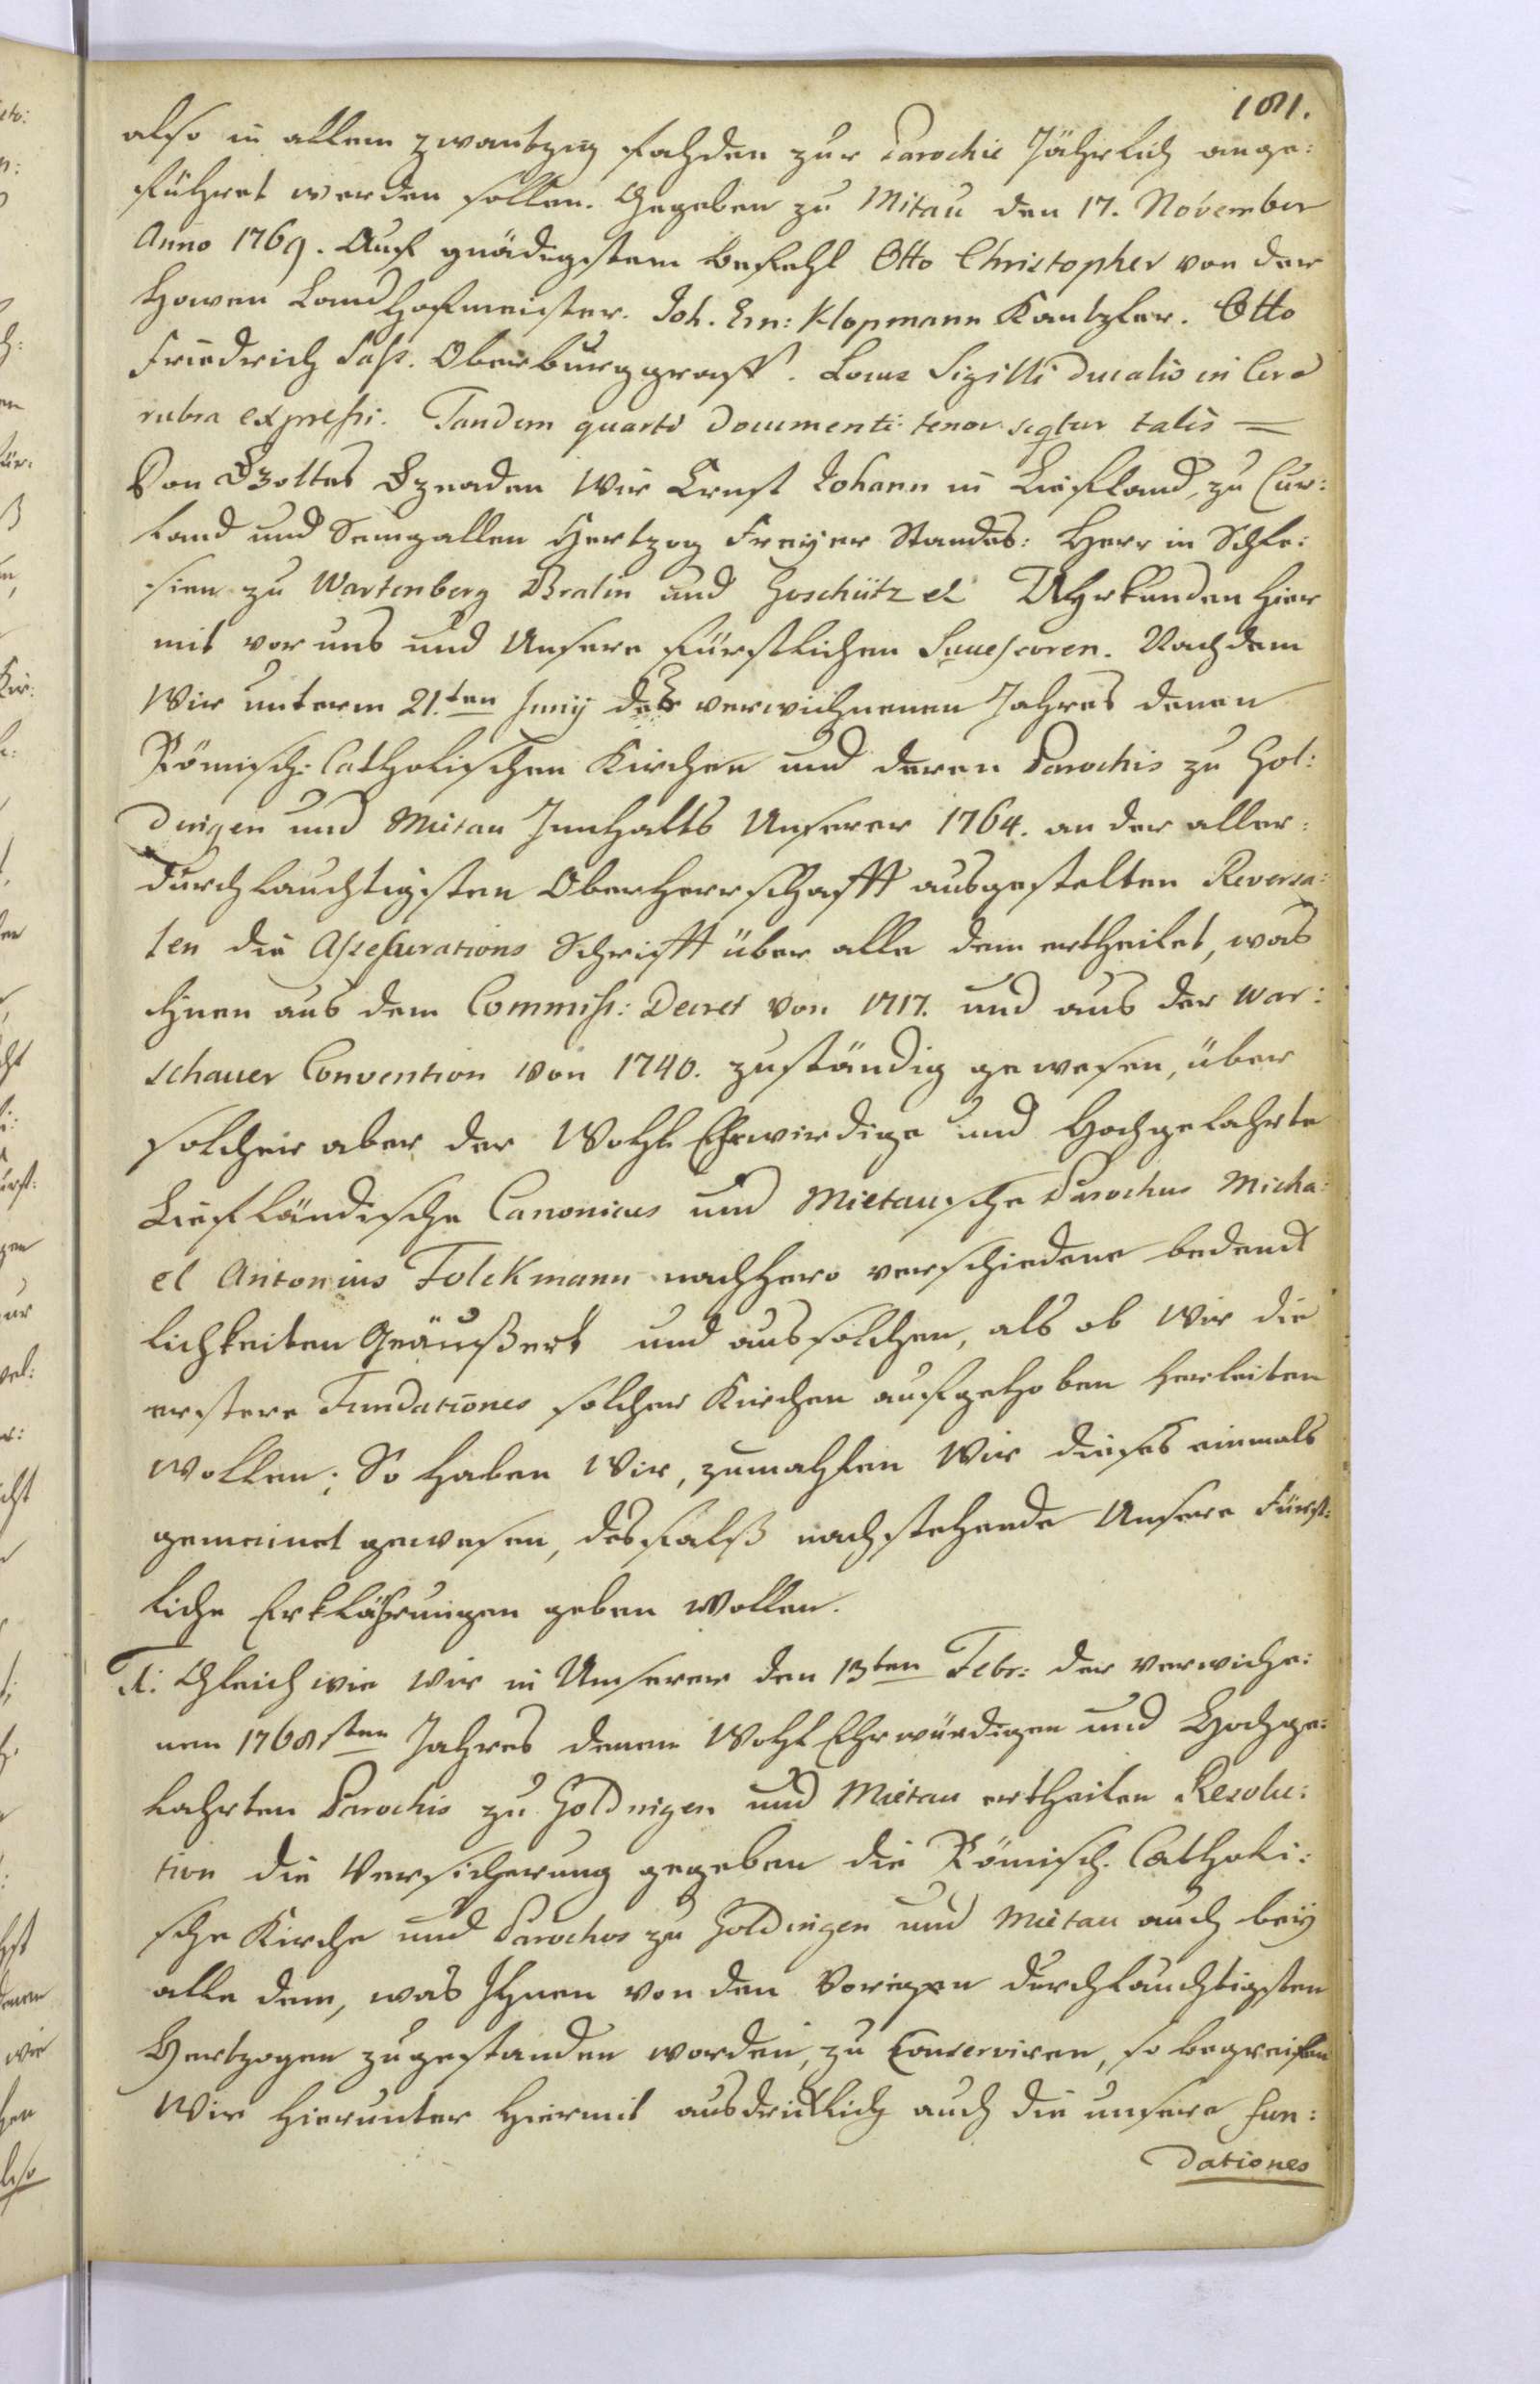 181.
also in allem zwantzig fahden zur Parochie Jährlich ange:
führet werden sollen. Gegeben zu Mitau den 17. November
Anno 1769. Auf gnädigstem Befehl Otto Christopher von der
Howen Land Hofmeister. Joh. Ern: Klopmann Kantzler. Otto
Friedrich Sahs. Oberburggraff. Locus Sigilli Ducalis in Cera
rubra expressi. Tandem quarti Documenti tenor seqtur talis =
Von Gottes Gnaden Wir Ernst Johann in Liefland, zu Cur:
land und Semgallen Hertzog Freyer Standes: Herr in Schle:
sien zu Wartenberg Bralin und Goschütz et Uhrkunden hier
mit vor uns und Unsere fürstlichen Successoren. Nachdem
Wir unterm 21.ten Juny des verwichnenen Jahres denen
Römisch: Catholischen Kirchen und deren Parochis zu Gol:
dingen und Mietau Innhalts Unserer 1764. an der aller:
durchlauchtigsten Oberherrschafft ausgestelten Reversa:
len die Assecurations Schrifft über alle dem ertheilet, was
ihnen aus dem Commiss: Decret von 1717. und aus der War:
schauer Convention von 1740. zuständig gewesen, über
solcher aber der WohlEhrwirdige und Hochgelahrte
Liefländische Canonicus und Mietausche Parochus Micha:
el Antonius Folckmann nachhero verschiedene bedenck
lichkeiten Geäußert und aus solchen, als ob Wir die
erstere Fundationes solcher Kirchen aufgehoben herleiten
wollen; So haben Wir, zumahlen Wir dieses einmals
gemeinet gewesen, desfalß nachstehende Unsere Fürst:
liche Erklährungen geben wollen.
A: Gleich wie wir in Unserer den 13ten Febr: der verwiche:
nen 1768sten Jahres denen WohlEhrwürdigen und Hochge:
lahrten Parochis zu Goldingen und Mietau ertheilen Resolu:
tion die Versicherung gegeben die Römisch. Catholi:
sche Kirche und Parochos zu Goldingen und Mietau auch bey
alle dem, was Ihnen von den Vorigen durchlauchtigsten
Hertzogen zugestanden worden, zu Conserviren, so begreifen
Wir hierunter hiermit ausdrücklich auch die unsere Fun:
dationes